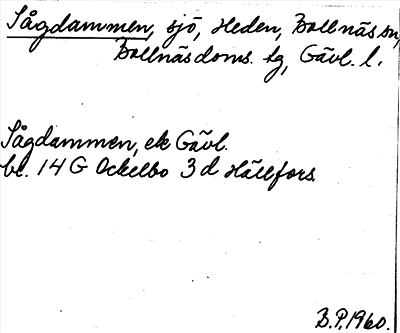 Sågdammen, sjö, Heden, Bollnäs sn,
Bollnäs doms. tg, Gävl. l.
Sågdammen, ek Gävl.
bl. 14 G Ockelbo 3 d Hällfors.
B.P. 1960.